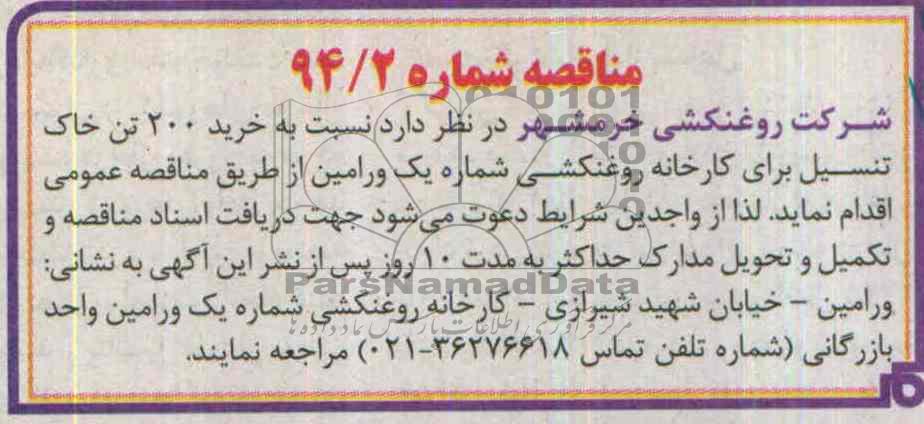 مناقصه شماره ۹۴/۲
شرکت روغنکشی خرمشهر در نظر دارد نسبت به خرید ۲۰۰ تن خاک
تنسیل برای کارخانه روغنکشی شماره یک ورامین از طریق مناقصه عمومی
اقدام نماید. لذا از واجدین شرایط دعوت می شود جهت دریافت اسناد مناقصه و
تکمیل و تحویل مدارک حداکثر به مدت ۱۰ روز پس از نشر این آگهی به نشانی:
ParsNamadData
ورامین - خیابان شهید شیرازی - کارخانه روغنکشی شماره یک ورامین واحد
بازرگانی (شماره تلفن تماس ۳۶۲۷۶۶۱۸-۰۲۱) مراجعه نمایند.